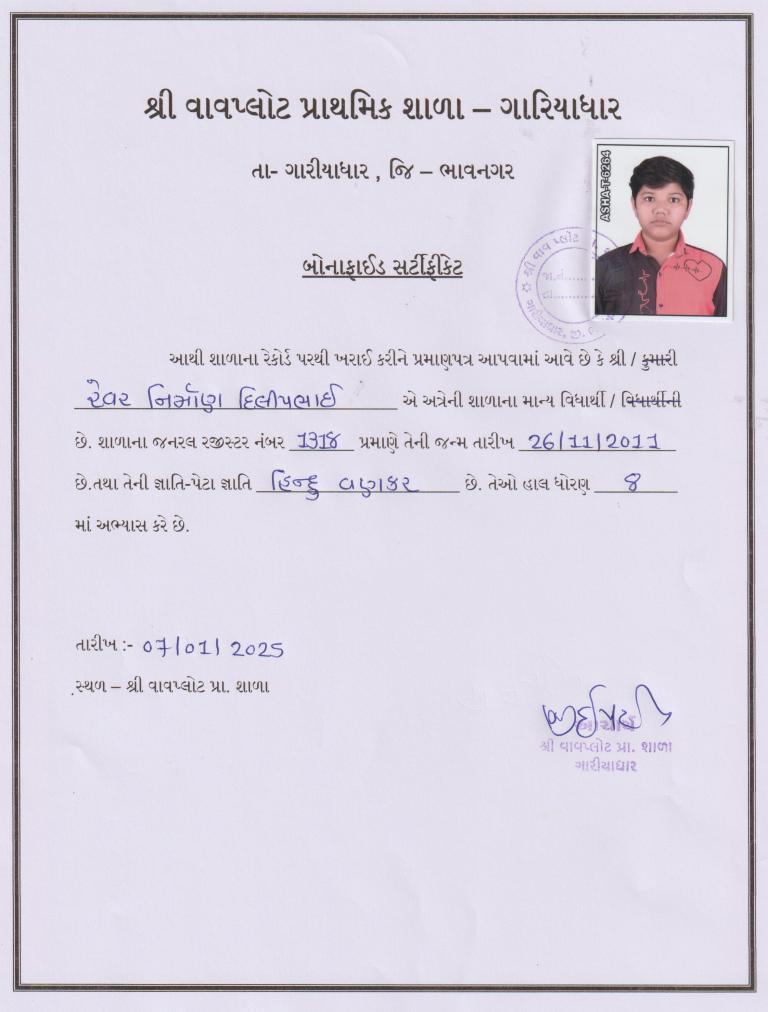 શ્રી વાવપ્લોટ પ્રાથમિક શાળા – ગારિયાધાર
તા- ગારીયાધાર , જિ – ભાવનગર
ASHA-T-6264
શ્રી વાવ પ્લોટ
ગારીયાધાર, જી.
બોનાફાઈડ સર્ટીફીકેટ
આથી શાળાના રેકોર્ડ પરથી ખરાઈ કરીને પ્રમાણપત્ર આપવામાં આવે છે કે શ્રી / કુમારી
રેવર નિર્માણ દિલીપભાઈ એ અત્રેની શાળાના માન્ય વિધાર્થી / વિધાર્થીની
છે. શાળાના જનરલ રજીસ્ટર નંબર 1318 પ્રમાણે તેની જન્મ તારીખ 26/11/2011
છે.તથા તેની જ્ઞાતિ-પેટા જ્ઞાતિ હિન્દુ વણકર છે. તેઓ હાલ ધોરણ 8
માં અભ્યાસ કરે છે.
તારીખ :- 07/01/2025
સ્થળ – શ્રી વાવપ્લોટ પ્રા. શાળા
આચાર્ય
શ્રી વાવપ્લોટ પ્રા. શાળા
ગારીયાધાર